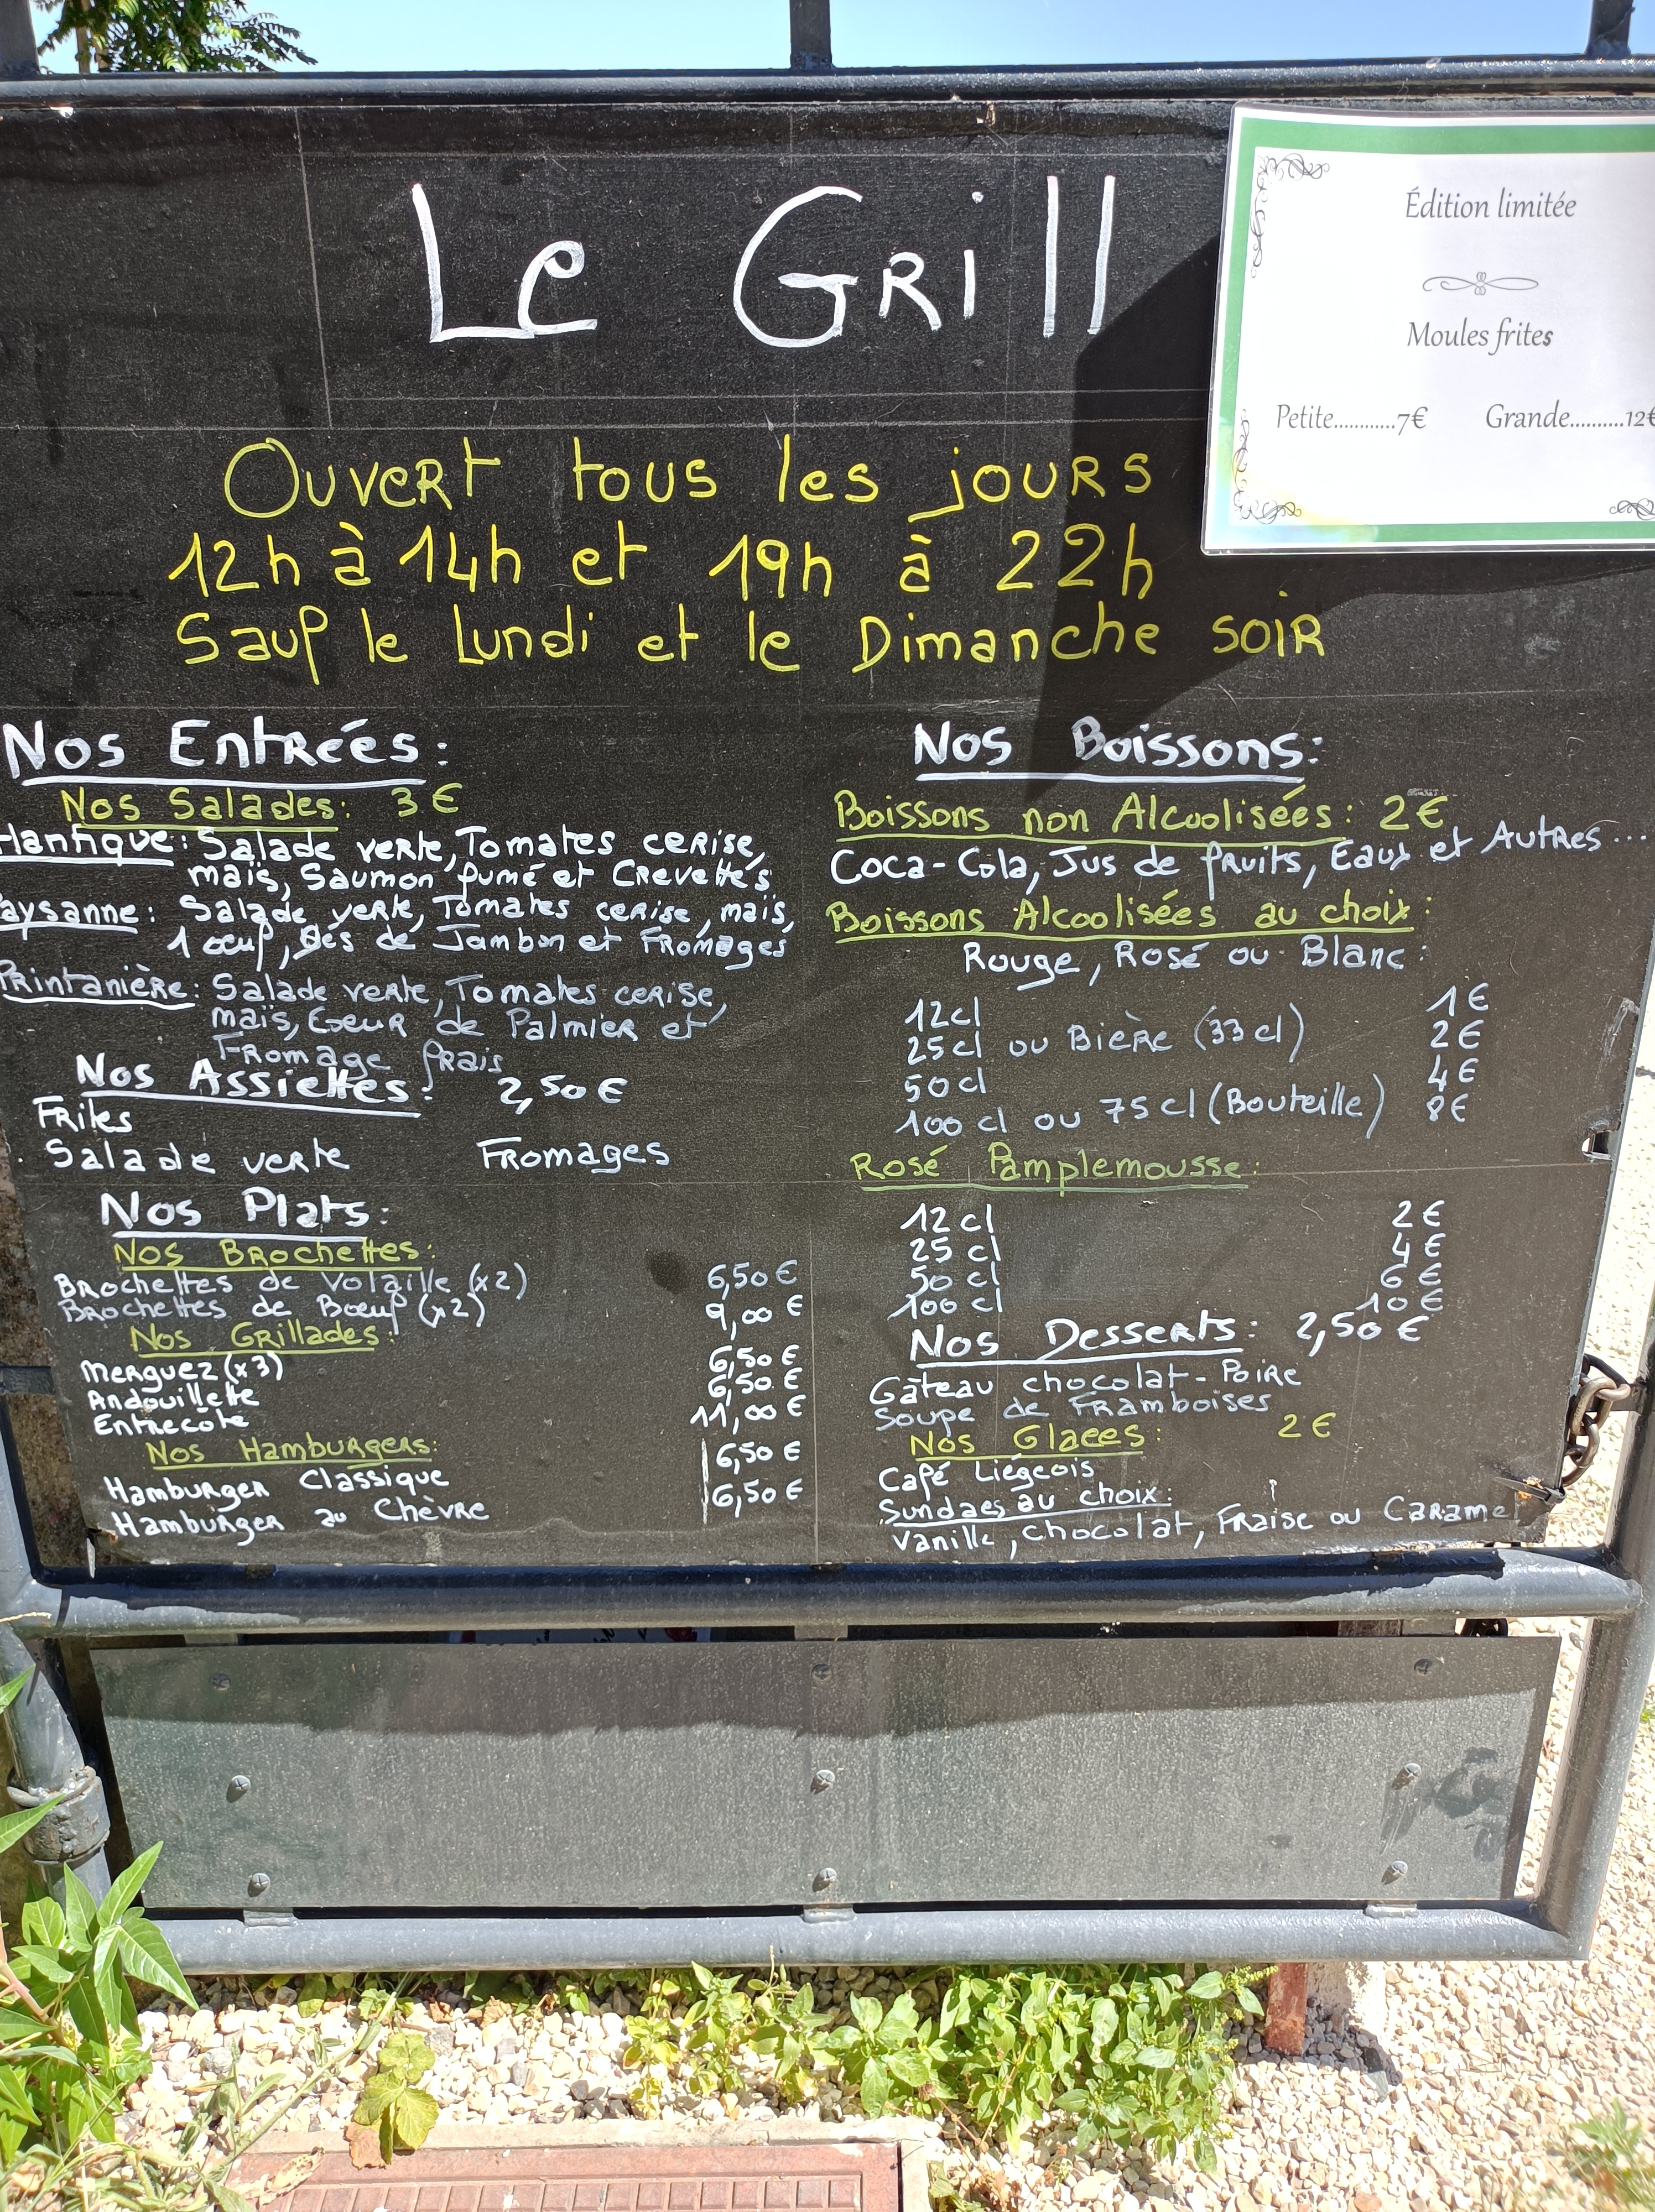 Le Grill
Édition limitée
Moules frites
Petite............7€ Grande..........12€
Ouvert tous les jours
12h à 14h et 19h à 22h
Sauf le Lundi et le Dimanche soir
Nos Entrées:
Nos Salades: 3€
tlantique: Salade verte, Tomates cerise,
maïs, Saumon fumé et Crevettes
aysanne: Salade verte, Tomates cerise, maïs,
1 oeuf, Dés de Jambon et Fromages
Printanière: Salade verte, Tomates cerise,
maïs, Coeur de Palmier et
Fromage frais
Nos Assiettes: 2,50€
Frites
Salade verte Fromages
Nos Plats:
Nos Brochettes:
Brochettes de Volaille (x2) 6,50€
Brochettes de Bœuf (x2) 9,00€
Nos Grillades:
Merguez (x3) 6,50€
Andouillette 6,50€
Entrecôte 11,00€
Nos Hamburgers:
Hamburger Classique 6,50€
Hamburger au Chèvre 6,50€
Nos Boissons:
Boissons non Alcoolisées: 2€
Coca-Cola, Jus de fruits, Eaux et Autres...
Boissons Alcoolisées au choix:
Rouge, Rosé ou Blanc:
12cl 1€
25cl ou Bière (33cl) 2€
50cl 4€
100cl ou 75cl (Bouteille) 8€
Rosé Pamplemousse:
12cl 2€
25cl 4€
50cl 6€
100cl 10€
Nos Desserts: 2,50€
Gâteau chocolat-Poire
Soupe de Framboises
Nos Glaces: 2€
Café Liégeois
Sundaes au choix:
Vanille, chocolat, Fraise ou Caramel